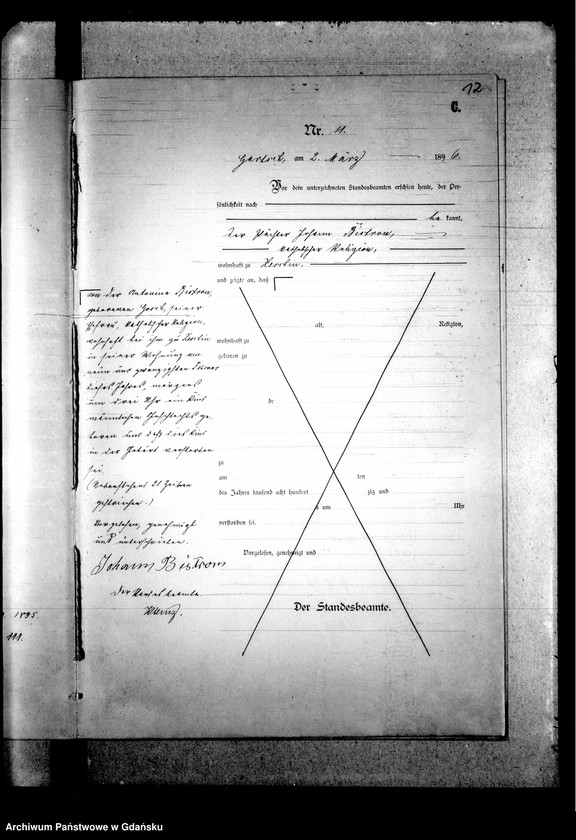 12
C.
Nr. 11.
am 2. März 1896.
Vor dem unterzeichneten Standesbeamten erschien heute, der Per-
sönlichkeit nach
be kannt,
der Pächter Johann Bistrom,
katholischer Religion,
wohnhaft zu
und zeigte an, daß
von der Antonina Bistrom,
geborenen seiner
Ehefrau, katholischer Religion,
wohnhaft bei ihm zu
in seiner Wohnung am
neun und zwanzigsten
dieses Jahres, morgens
um drei Uhr ein Kind
männlichen Geschlechts ge-
boren und daß dies Kind
in der Geburt verstorben
sei.
(Nebenstehend 21 Zeilen
gestrichen.)
Vorgelesen, genehmigt
und unterschrieben.
Johann Bistrom
Der Standesbeamte.
alt, Religion,
wohnhaft zu
geboren zu
de
zu
am ten
des Jahres tausend acht hundert zig und
um Uhr
verstorben sei.
Vorgelesen, genehmigt und
Der Standesbeamte.
1895.
111.
Archiwum Państwowe w Gdańsku